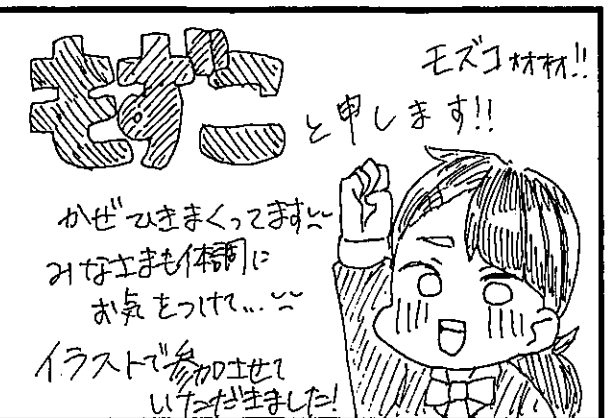 もずこ
と申します!!
モズコォォォォ!!
かぜひきまくってます〜
みなさまも体調に
お気をつけて...〜
イラストで参加させて
いただきました!